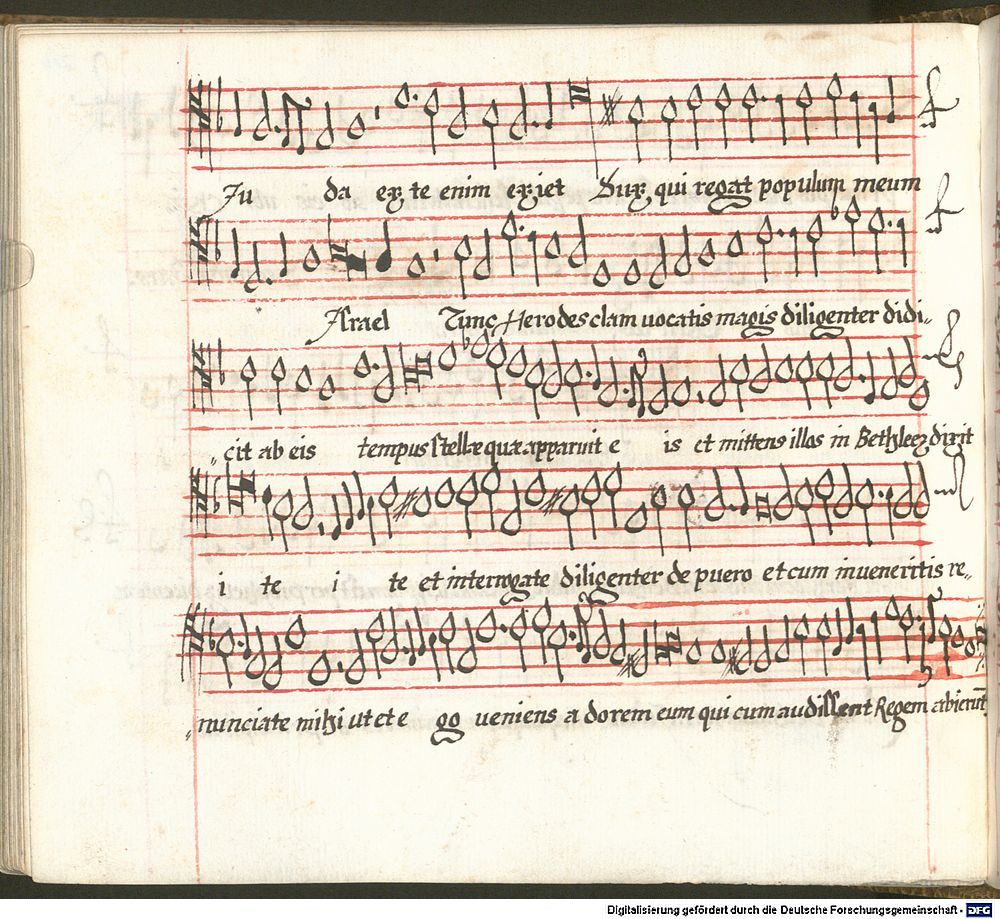 Ju da ex te enim exiet Dux qui regat populum meum
Israel Tunc Herodes clam uocatis magis diligenter didi„
„cit ab eis tempus stellæ quæ apparuit e is et mittens illos in Bethleez dixit
i te i te et interrogate diligenter de puero et cum inueneritis re„
„nunciate mihi ut et e go ueniens adorem eum qui cum audissent Regem abierūt
Digitalisierung gefördert durch die Deutsche Forschungsgemeinschaft - DFG